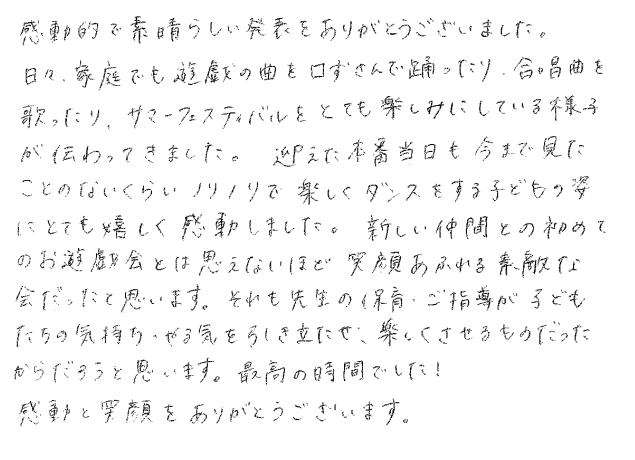 感動的で素晴らしい発表をありがとうございました。
日々、家庭でも遊戯の曲を口ずさんで踊ったり、合唱曲を
歌ったり、サマーフェスティバルをとても楽しみにしている様子
が伝わってきました。 迎えた本番当日も今まで見た
ことのないくらいノリノリで楽しくダンスをする子どもの姿
にとても嬉しく感動しました。 新しい仲間との初めて
のお遊戯会とは思えないほど笑顔あふれる素敵な
会だったと思います。それも先生の保育・ご指導が子ども
たちの気持ち・やる気を引き立たせ、楽しくさせるものだった
からだろうと思います。最高の時間でした!
感動と笑顔をありがとうございます。